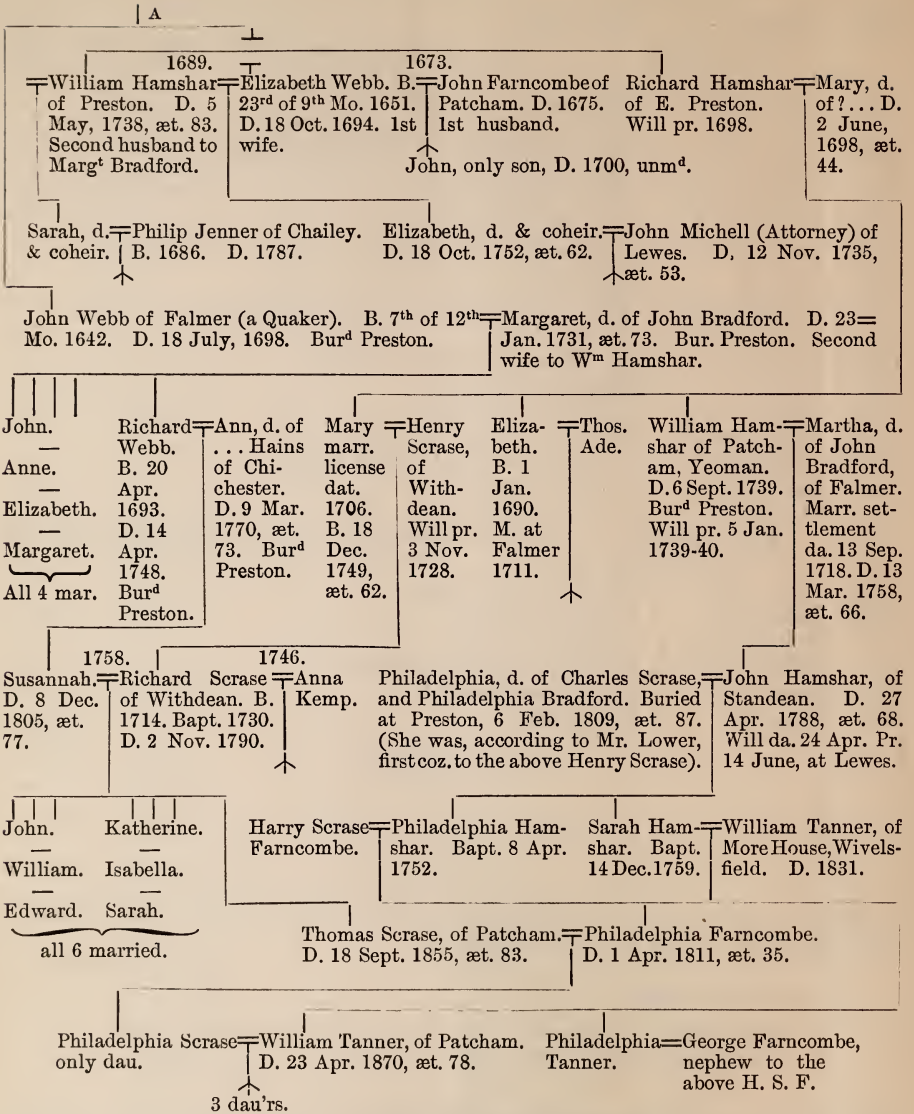 A
1689.
1673.
William Hamshar
of Preston. D. 5
May, 1738, æt. 83.
Second husband to
Margᵗ Bradford.
Elizabeth Webb. B.
23ʳᵈ of 9ᵗʰ Mo. 1651.
D. 18 Oct. 1694. 1st
wife.
John Farncombe of
Patcham. D. 1675.
1st husband.
John, only son, D. 1700, unmᵈ.
Richard Hamshar
of E. Preston.
Will pr. 1698.
Mary, d.
of ? ... D.
2 June,
1698, æt.
44.
Sarah, d.
& coheir.
Philip Jenner of Chailey.
B. 1686. D. 1787.
Elizabeth, d. & coheir.
D. 18 Oct. 1752, æt. 62.
John Michell (Attorney) of
Lewes. D. 12 Nov. 1735,
æt. 53.
John Webb of Falmer (a Quaker). B. 7ᵗʰ of 12ᵗʰ
Mo. 1642. D. 18 July, 1698. Burᵈ Preston.
Margaret, d. of John Bradford. D. 23=
Jan. 1731, æt. 73. Bur. Preston. Second
wife to Wᵐ Hamshar.
John.
—
Anne.
—
Elizabeth.
—
Margaret.
All 4 mar.
Richard
Webb.
B. 20
Apr.
1693.
D. 14
Apr.
1748.
Burᵈ
Preston.
Ann, d. of
... Hains
of Chi-
chester.
D. 9 Mar.
1770, æt.
73. Burᵈ
Preston.
Mary
marr.
license
dat.
1706.
B. 18
Dec.
1749,
æt. 62.
Henry
Scrase,
of
With-
dean.
Will pr.
3 Nov.
1728.
Eliza-
beth.
B. 1
Jan.
1690.
M. at
Falmer
1711.
Thos.
Ade.
William Ham-
shar of Patch-
am, Yeoman.
D. 6 Sept. 1739.
Burᵈ Preston.
Will pr. 5 Jan.
1739-40.
Martha, d.
of John
Bradford,
of Falmer.
Marr. set-
tlement
da. 13 Sep.
1718. D. 13
Mar. 1758,
æt. 66.
1758.
1746.
Susannah.
D. 8 Dec.
1805, æt.
77.
Richard Scrase
of Withdean. B.
1714. Bapt. 1730.
D. 2 Nov. 1790.
Anna
Kemp.
Philadelphia, d. of Charles Scrase,
and Philadelphia Bradford. Buried
at Preston, 6 Feb. 1809, æt. 87.
(She was, according to Mr. Lower,
first coz. to the above Henry Scrase).
John Hamshar, of
Standean. D. 27
Apr. 1788, æt. 68.
Will da. 24 Apr. Pr.
14 June, at Lewes.
John.
—
William.
—
Edward.
Katherine.
—
Isabella.
—
Sarah.
all 6 married.
Harry Scrase
Farncombe.
Philadelphia Ham-
shar. Bapt. 8 Apr.
1752.
Sarah Ham-
shar. Bapt.
14 Dec. 1759.
William Tanner, of
More House, Wivels-
field. D. 1831.
Thomas Scrase, of Patcham.
D. 18 Sept. 1855, æt. 83.
Philadelphia Farncombe.
D. 1 Apr. 1811, æt. 35.
Philadelphia Scrase
only dau.
William Tanner, of Patcham.
D. 23 Apr. 1870, æt. 78.
3 dau'rs.
Philadelphia
Tanner.
George Farncombe,
nephew to the
above H. S. F.